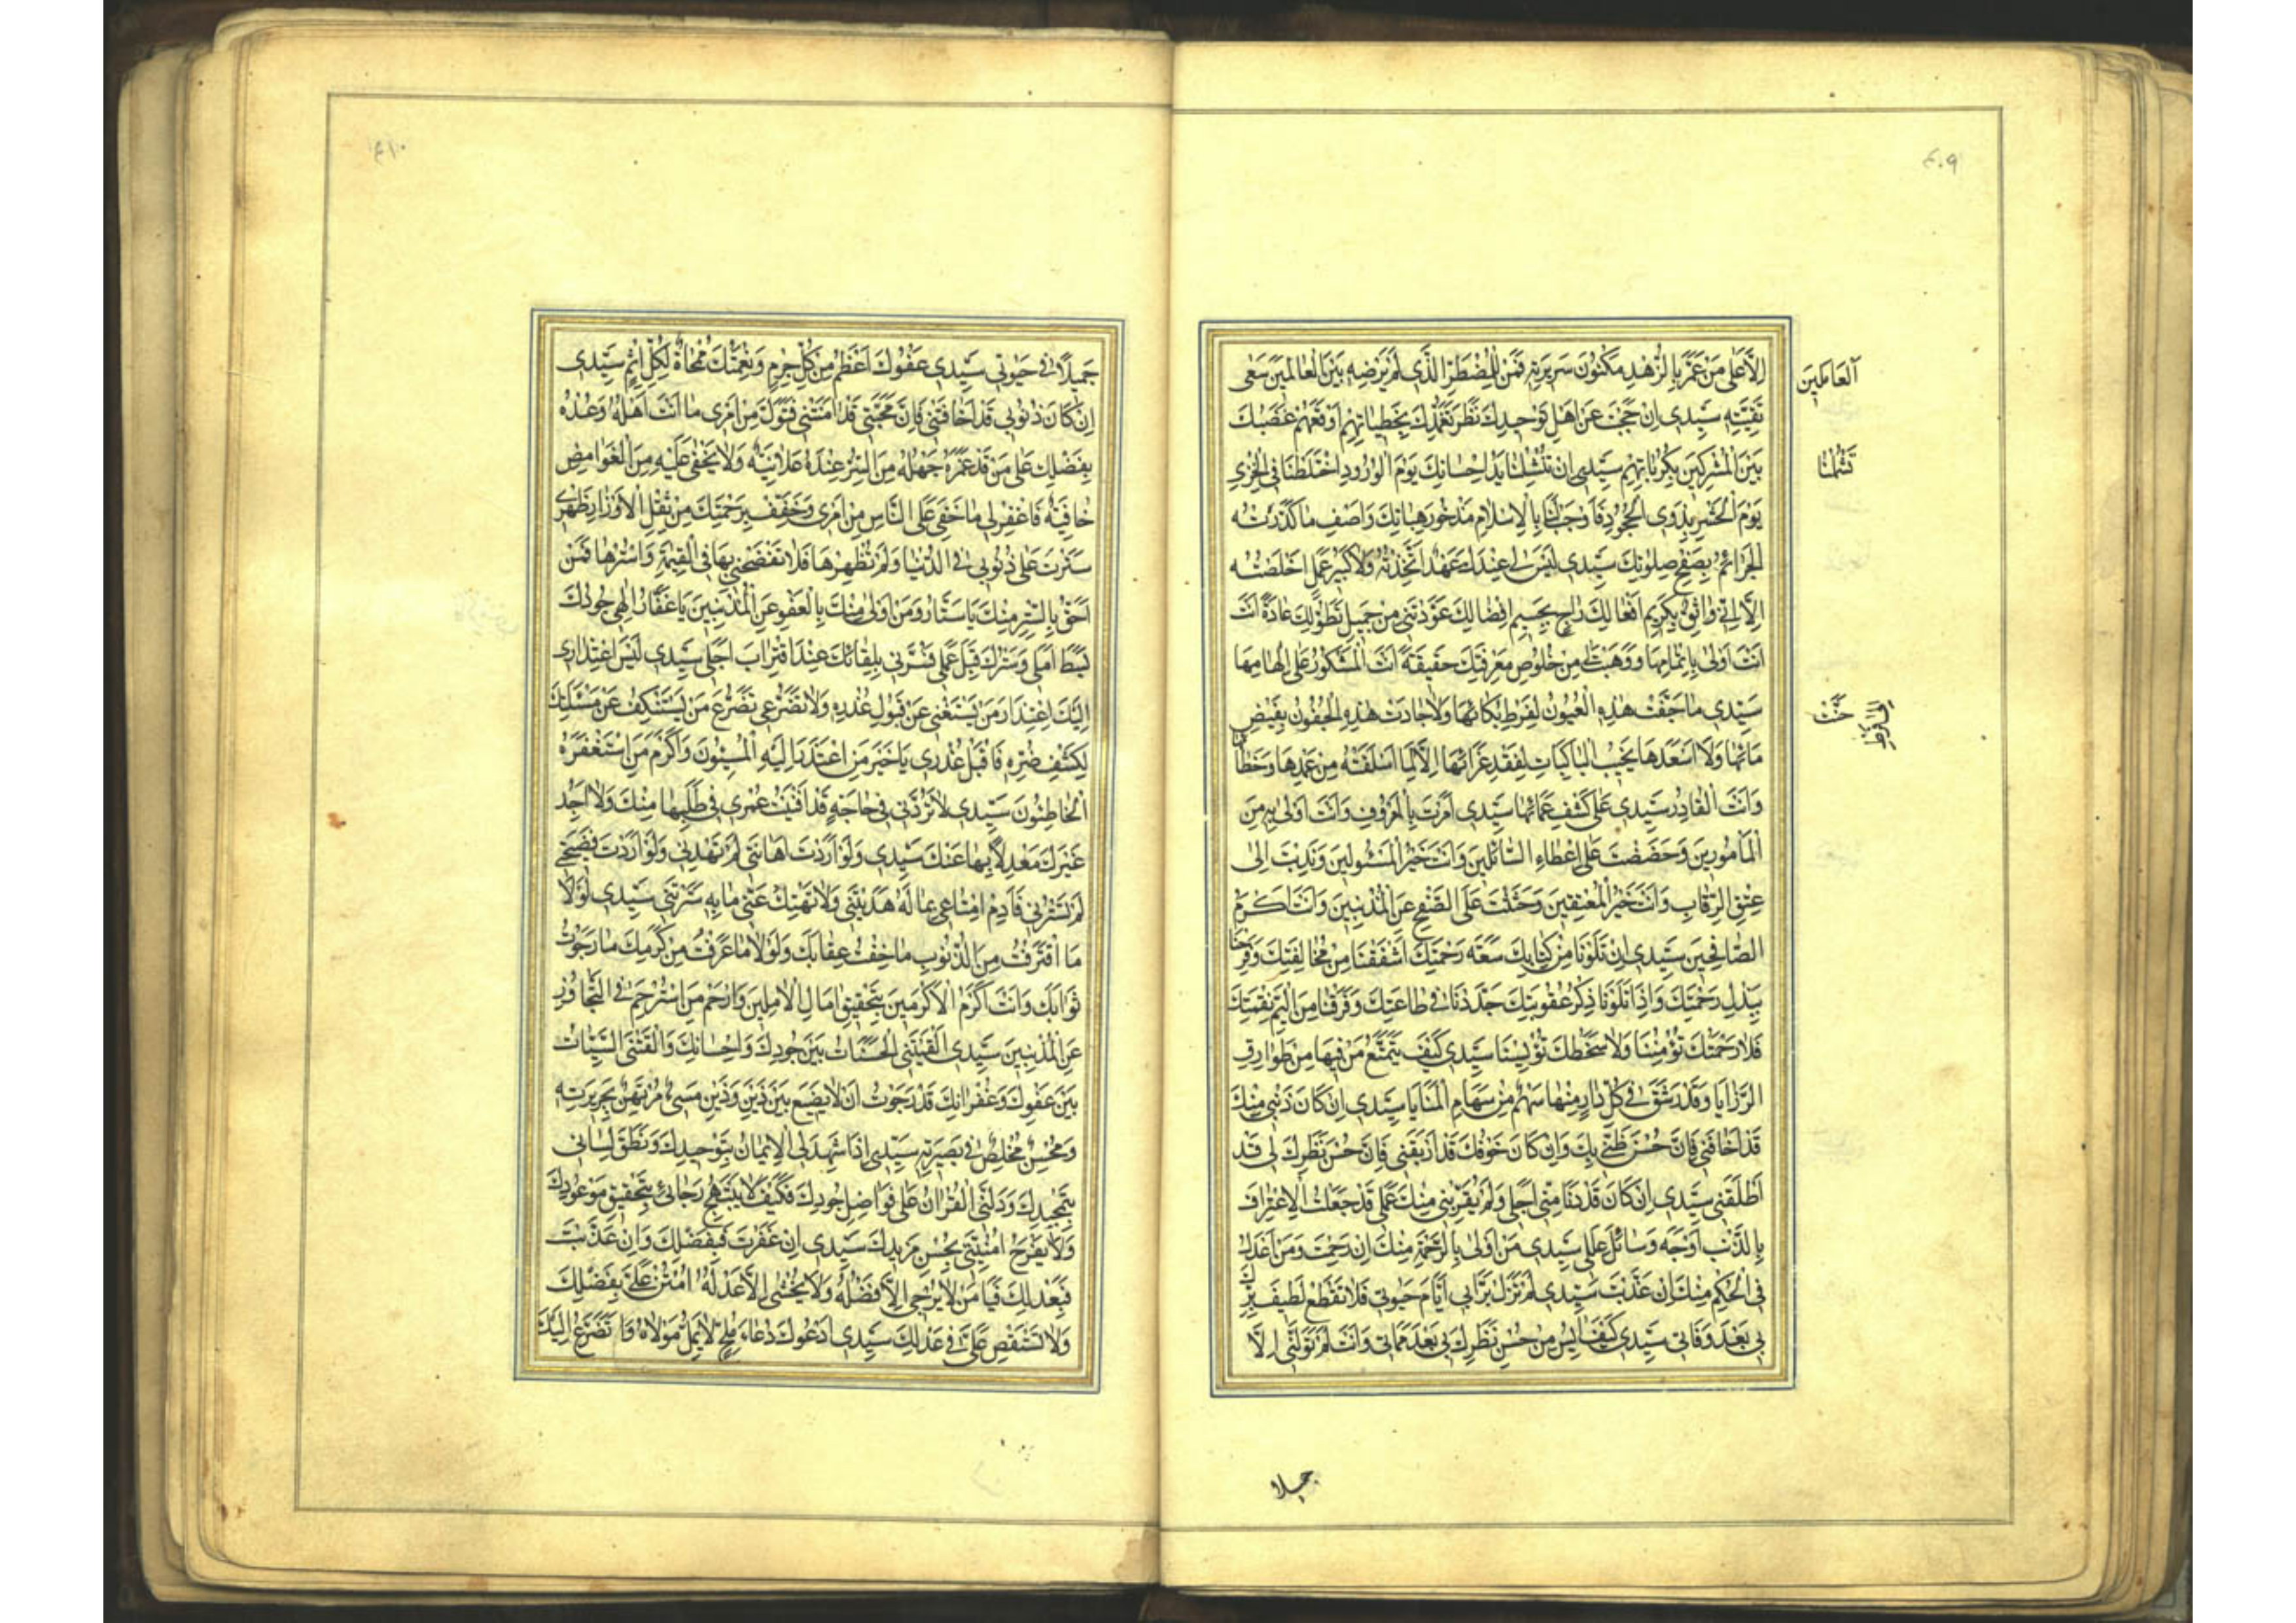 ٤٠٩
اِلاّٰ عَلىٰ مَنْ عَمَّرَ بِالزُّهْدِ مَكْنُونَ سَرِيرَتِهِ فَمَنْ لِلْمُضْطَرِّ الَّذِي لَمْ يُرْضِهِ بَيْنَ الْعٰالَمِينَ سَعْىُ
نَقِيَّتِهِ سَيِّدِي اِنْ حَجَبْتَ عَنْ اَهْلِ تَوْحِيدِكَ نَظَرَ تَغَمُّدِكَ بِخَطِيئٰاتِهِمْ اَوْقَعَهُمْ غَضَبُكَ
بَيْنَ الْمُشْرِكِينَ بِكُرُبٰاتِهِمْ سَيِّدِي اِنْ لَمْ تَنْشُلْنٰا يَدُ اِحْسٰانِكَ يَوْمَ الْوُرُودِ اخْتَلَطْنٰا فِي الْخِزْيِ
يَوْمَ الْحَشْرِ بِذَوِي الْجُحُودِ فَاَوْجِبْ لَنٰا بِالْاِسْلاٰمِ مَذْخُورَ هِبٰاتِكَ وَاَصْفِ مٰا كَدَّرَتْهُ
الْجَرٰائِمُ بِصَفْحِ صِلاٰتِكَ سَيِّدِي لَيْسَ لِي عِنْدَكَ عَهْدٌ اتَّخَذْتُهُ وَلاٰ كَبِيرُ عَمَلٍ اَخْلَصْتُهُ
اِلاّٰ اَنِّي وٰاثِقٌ بِكَرِيمِ اَفْعٰالِكَ رٰاجٍ بِجَسِيمِ اِفْضٰالِكَ عَوَّدْتَنِي مِنْ جَمِيلِ تَطَوُّلِكَ عٰادَةً اَنْتَ
اَنْتَ اَوْلىٰ بِاِتْمٰامِهٰا وَوَهَبْتَ لِي مِنْ خُلُوصِ مَعْرِفَتِكَ حَقِيقَةً اَنْتَ الْمَشْكُورُ عَلىٰ اِلْهٰامِهٰا
سَيِّدِي مٰا جَفَّتْ هٰذِهِ الْعُيُونُ لِفَرْطِ بُكٰائِهٰا وَلاٰ جٰادَتْ هٰذِهِ الْجُفُونُ بِفَيْضِ
مٰائِهٰا وَلاٰ اَسْعَدَهٰا نَحِيبُ الْبٰاكِيٰاتِ لِفَقْدِ عَزٰائِهٰا اِلاّٰ لِمٰا اَسْلَفَتْهُ مِنْ عَمْدِهٰا وَخَطٰائِهٰا
وَاَنْتَ الْقٰادِرُ سَيِّدِي عَلىٰ كَشْفِ غَمّٰائِهٰا سَيِّدِي اَمَرْتَ بِالْمَعْرُوفِ وَاَنْتَ اَوْلىٰ بِهِ مِنَ
الْمَأْمُورِينَ وَحَضَضْتَ عَلىٰ اِعْطٰاءِ السّٰائِلِينَ وَاَنْتَ خَيْرُ الْمَسْئُولِينَ وَنَدَبْتَ اِلىٰ
عِتْقِ الرِّقٰابِ وَاَنْتَ خَيْرُ الْمُعْتِقِينَ وَحَثَثْتَ عَلَى الصَّفْحِ عَنِ الْمُذْنِبِينَ وَاَنْتَ اَكْرَمُ
الصّٰافِحِينَ سَيِّدِي اِنْ تَلَوْنٰا مِنْ كِتٰابِكَ سَعَةَ رَحْمَتِكَ اَشْفَقْنٰا مِنْ مُخٰالَفَتِكَ وَفَرِحْنٰا
بِبَذْلِ رَحْمَتِكَ وَاِذٰا تَلَوْنٰا ذِكْرَ عُقُوبَتِكَ جَدَدْنٰا فِي طٰاعَتِكَ وَفَرِقْنٰا مِنْ اَلِيمِ نِقْمَتِكَ
فَلاٰ رَحْمَتُكَ تُؤْمِنُنٰا وَلاٰ سَخَطُكَ تُؤْيِسُنٰا سَيِّدِي كَيْفَ يَتَمَنَّعُ مَنْ فِيهٰا مِنْ طَوٰارِقِ
الرَّزٰايٰا وَقَدْ رَشَقَ فِي كُلِّ دٰارٍ مِنْهٰا سَهْمٌ مِنْ سِهٰامِ الْمَنٰايٰا سَيِّدِي اِنْ كٰانَ ذَنْبِي مِنْكَ
قَدْ اَخٰافَنِي فَاِنَّ حُسْنَ ظَنِّي بِكَ وَاِنْ كٰانَ خَوْفُكَ قَدْ اَرْبَقَنِي فَاِنَّ حُسْنَ نَظَرِكَ لِي قَدْ
اَطْلَقَنِي سَيِّدِي اِنْ كٰانَ قَدْ دَنٰا مِنِّي اَجَلِي وَلَمْ يُقَرِّبْنِي مِنْكَ عَمَلِي قَدْ جَعَلْتُ الْاِعْتِرٰافَ
بِالذَّنْبِ اَوْجَهَ وَسٰائِلِ عِلَلِي سَيِّدِي مَنْ اَوْلىٰ بِالرَّحْمَةِ مِنْكَ اِنْ رَحِمْتَ وَمَنْ اَعْدَلُ
فِي الْحُكْمِ مِنْكَ اِنْ عَذَّبْتَ سَيِّدِي لَمْ تَزَلْ بَرّاً بِي اَيّٰامَ حَيٰوتِي فَلاٰ تَقْطَعْ لَطِيفَ بِرِّكَ
بِي بَعْدَ وَفٰاتِي سَيِّدِي كَيْفَ اٰيَسُ مِنْ حُسْنِ نَظَرِكَ بِي بَعْدَ مَمٰاتِي وَاَنْتَ لَمْ تُوَلِّنِي اِلاّٰ
اَلْعٰامِلِينَ
تَشْمُلْنٰا
جميلا
٤١٠
جَمِيلاً فِي حَيٰوتِي سَيِّدِي عَفْوُكَ اَعْظَمُ مِنْ كُلِّ جُرْمٍ وَنِعْمَتُكَ مَمْحٰاةٌ لِكُلِّ اِثْمٍ سَيِّدِي
اِنْ كٰانَ ذُنُوبِي قَدْ اَخٰافَتْنِي فَاِنَّ مَحَبَّتِي قَدْ اٰمَنَتْنِي فَتَوَلَّ مِنْ اَمْرِي مٰا اَنْتَ اَهْلُهُ وَعُدْ
بِفَضْلِكَ عَلىٰ مَنْ قَدْ غَمَرَهُ جَهْلُهُ مَنِ السِّرُّ عِنْدَهُ عَلاٰنِيَةٌ وَلاٰ يَخْفىٰ عَلَيْهِ مِنَ الْغَوٰامِضِ
خٰافِيَةٌ فَاغْفِرْ لِي مٰا خَفِيَ عَلَى النّٰاسِ مِنْ اَمْرِي وَخَفِّفْ بِرَحْمَتِكَ مِنْ ثِقْلِ الْاَوْزٰارِ ظَهْرِي
سَتَرْتَ عَلَىَّ ذُنُوبِي فِي الدُّنْيٰا وَلَمْ تُظْهِرْهٰا فَلاٰ تَفْضَحْنِي بِهٰا فِي الْقِيٰمَةِ وَاسْتُرْهٰا فَمَنْ
اَحَقُّ بِالسَّتْرِ مِنْكَ يٰا سَتّٰارُ وَمَنْ اَوْلىٰ مِنْكَ بِالْعَفْوِ عَنِ الْمُذْنِبِينَ يٰا غَفّٰارُ اِلٰهِي جُودُكَ
بَسَطَ اَمَلِي وَسَتْرُكَ قَبِلَ عَمَلِي فَسُرَّنِي بِلِقٰائِكَ عِنْدَ اقْتِرٰابِ اَجَلِي سَيِّدِي لَيْسَ اعْتِذٰارِي
اِلَيْكَ اِعْتِذٰارَ مَنْ يَسْتَغْنِي عَنْ قَبُولِ عُذْرِهِ وَلاٰ تَضَرُّعِي تَضَرُّعَ مَنْ يَسْتَنْكِفُ عَنْ مَسْئَلَتِكَ
لِكَشْفِ ضُرِّهِ فَاقْبَلْ عُذْرِي يٰا خَيْرَ مَنِ اعْتَذَرَ اِلَيْهِ الْمُسِيئُونَ وَاَكْرَمَ مَنِ اسْتَغْفَرَهُ
الْخٰاطِئُونَ سَيِّدِي لاٰ تَرُدَّنِي فِي حٰاجَةٍ قَدْ اَفْنَيْتُ عُمْرِي فِي طَلَبِهٰا مِنْكَ وَلاٰ اَجِدُ
غَيْرَكَ مَعْدِلاً بِهٰا عَنْكَ سَيِّدِي وَلَوْ اَرَدْتَ اِهٰانَتِي لَمْ تَهْدِنِي وَلَوْ اَرَدْتَ فَضِيحَتِي
لَمْ تَسْتُرْنِي فَاَدِمْ اِمْتٰاعِي بِمٰا لَهُ هَدَيْتَنِي وَلاٰ تَهْتِكْ عَنِّي مٰا بِهِ سَتَرْتَنِي سَيِّدِي لَوْلاٰ
مَا اقْتَرَفْتُ مِنَ الذُّنُوبِ مٰا خِفْتُ عِقٰابَكَ وَلَوْلاٰ مٰا عَرَفْتُ مِنْ كَرَمِكَ مٰا رَجَوْتُ
ثَوٰابَكَ وَاَنْتَ اَكْرَمُ الْاَكْرَمِينَ بِتَحْقِيقِ اٰمٰالِ الْاٰمِلِينَ وَاَرْحَمُ مَنِ اسْتُرْحِمَ فِي التَّجٰاوُزِ
عَنِ الْمُذْنِبِينَ سَيِّدِي اَلْقَتْنِي الْحَسَنٰاتُ بَيْنَ جُودِكَ وَاِحْسٰانِكَ وَاَلْقَتْنِي السَّيِّئٰاتُ
بَيْنَ عَفْوِكَ وَغُفْرٰانِكَ قَدْ رَجَوْتُ اَنْ لاٰ يَضِيعَ بَيْنَ ذَيْنِ وَذَيْنِ مُسِيءٌ مُرْتَهَنٌ بِجَرِيرَتِهِ
وَمُحْسِنٌ مُخْلِصٌ فِي بَصِيرَتِهِ سَيِّدِي اِذٰا شَهِدَ لِي الْاِيمٰانُ بِتَوْحِيدِكَ وَنَطَقَ لِسٰانِي
بِتَمْجِيدِكَ وَدَلَّنِي الْقُرْاٰنُ عَلىٰ فَوٰاضِلِ جُودِكَ فَكَيْفَ لاٰ يَبْتَهِجُ رَجٰائِي بِتَحْقِيقِ مَوْعُودِكَ
وَلاٰ يَفْرَحُ اُمْنِيَّتِي بِحُسْنِ مَزِيدِكَ سَيِّدِي اِنْ غَفَرْتَ فَبِفَضْلِكَ وَاِنْ عَذَّبْتَ
فَبِعَدْلِكَ فَيٰا مَنْ لاٰ يُرْجىٰ اِلاّٰ فَضْلُهُ وَلاٰ يُخْشىٰ اِلاّٰ عَدْلُهُ امْنُنْ عَلَىَّ بِفَضْلِكَ
وَلاٰ تَسْتَقْصِ عَلَىَّ فِي عَدْلِكَ سَيِّدِي اَدْعُوكَ دُعٰاءَ مُلِحٍّ لاٰ يَمَلُّ مَوْلاٰهُ وَاَتَضَرَّعُ اِلَيْكَ